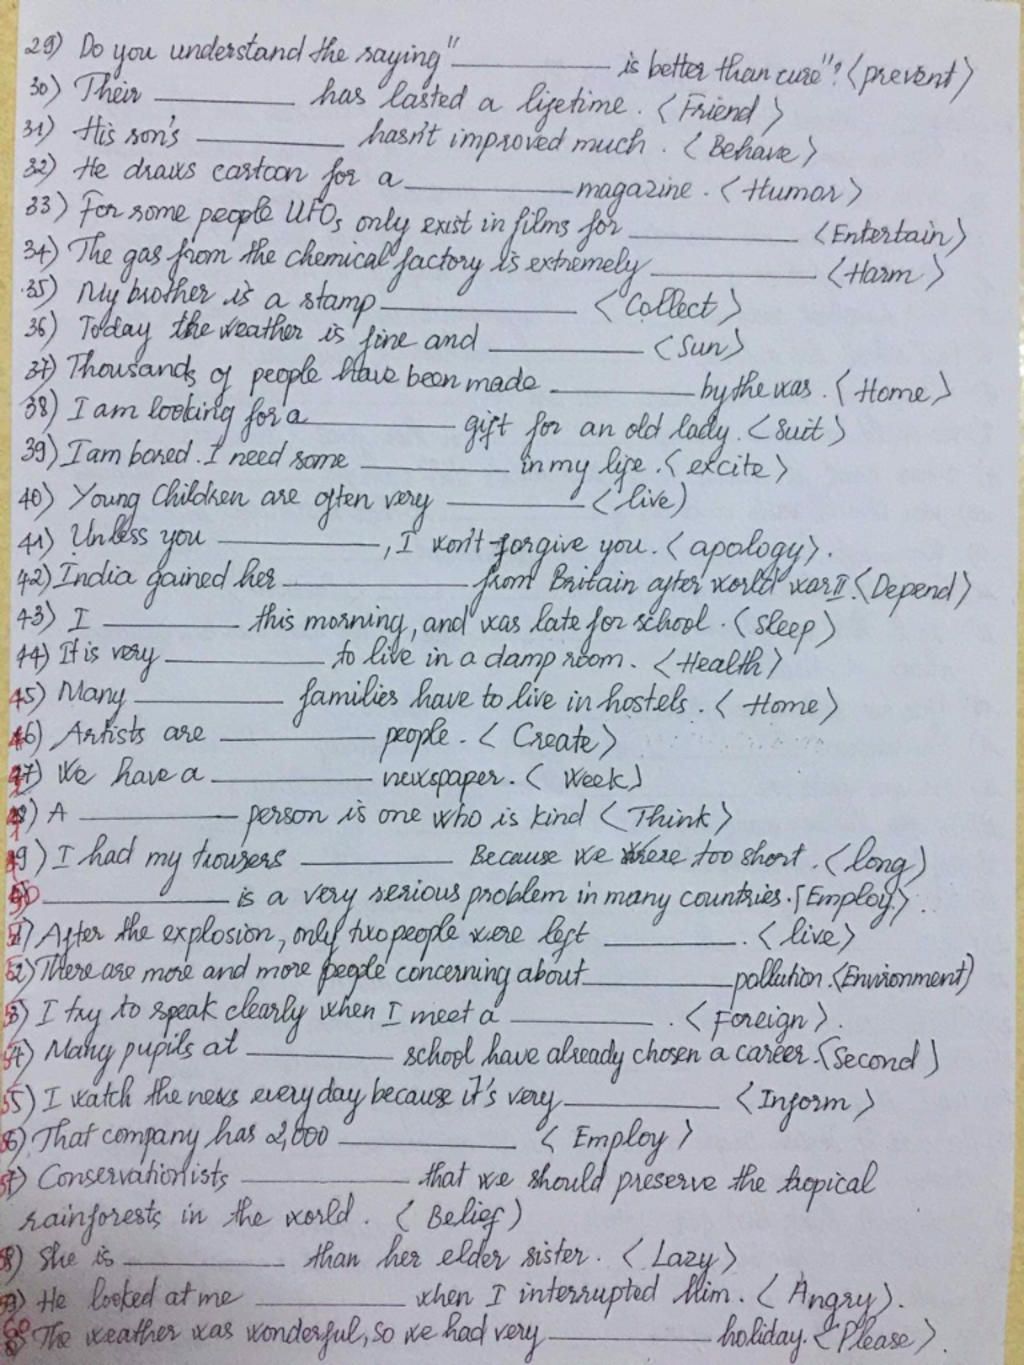 29) Do you understand the saying "__________ is better than cure"? <prevent>
30) Their __________ has lasted a lifetime. <Friend>
31) His son's __________ hasn't improved much. <Behave>
32) He draws cartoon for a __________ magazine. <Humor>
33) For some people UFOs only exist in films for __________ <Entertain>
34) The gas from the chemical factory is extremely __________ <Harm>
35) My brother is a stamp __________ <Collect>
36) Today the weather is fine and __________ <Sun>
37) Thousands of people have been made __________ by the war. <Home>
38) I am looking for a __________ gift for an old lady. <Suit>
39) I am bored. I need some __________ in my life. <excite>
40) Young Children are often very __________ <live)
41) Unless you __________, I won't forgive you. <apology>.
42) India gained her __________ from Britain after world war II. <Depend>
43) I __________ this morning, and was late for school. <Sleep>
44) It is very __________ to live in a damp room. <Health>
45) Many __________ families have to live in hostels. <Home>
46) Artists are __________ people. <Create>
47) We have a __________ newspaper. <Week>
48) A __________ person is one who is kind <Think>
49) I had my trousers __________ Because we were too short. <long>
50) __________ is a very serious problem in many countries. [Employ>.
51) After the explosion, only two people were left __________. <live>
52) There are more and more people concerning about __________ pollution. <Environment)
53) I try to speak clearly when I meet a __________. <Foreign>.
54) Many pupils at __________ school have already chosen a career. <Second>
55) I watch the news every day because it's very __________ <Inform>
56) That company has 2,000 __________ <Employ>
57) Conservationists __________ that we should preserve the tropical
rainforests in the world. <Belief)
58) She is __________ than her elder sister. <Lazy>
59) He looked at me __________ when I interrupted him. <Angry>.
60) The weather was wonderful, so we had very __________ holiday. <Please>.